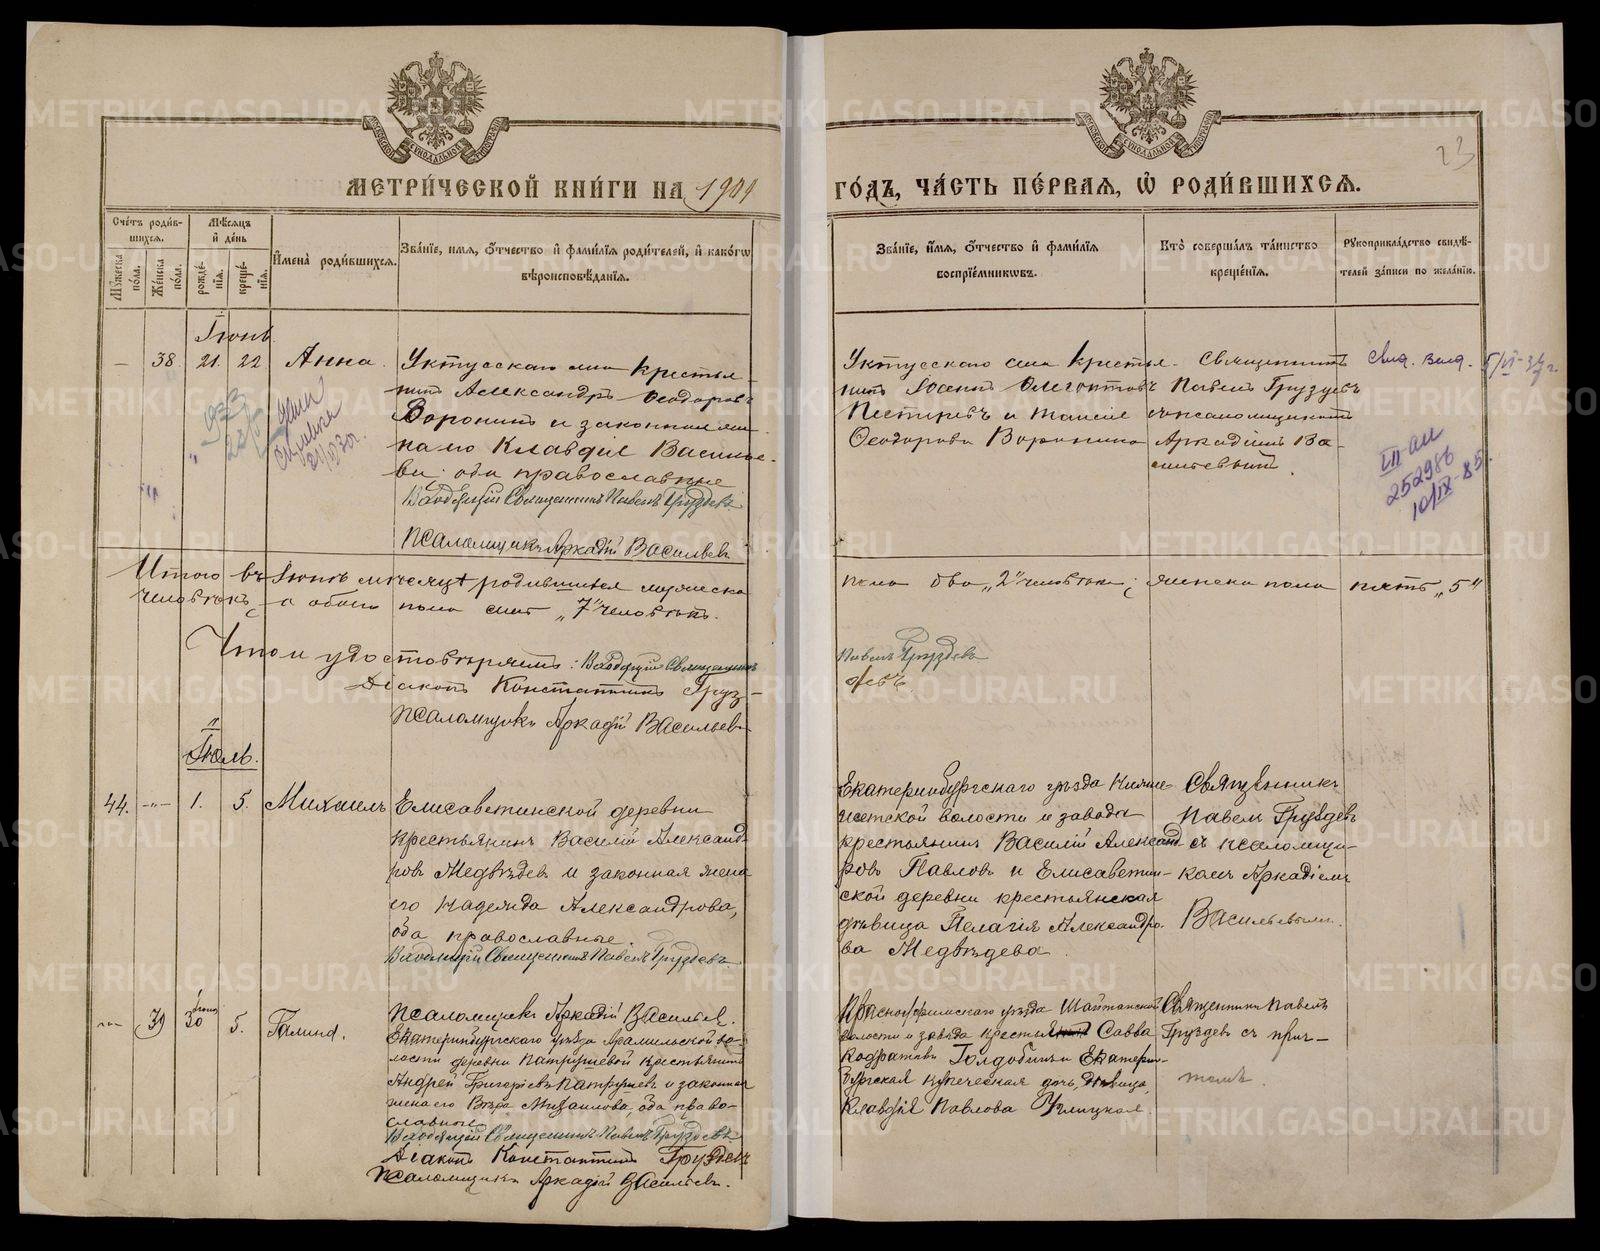 МЕТРИ́ЧЕСКОЙ КНИ́ГИ НА 1904
ГО́ДЪ, ЧА́СТЬ ПЕ́РВАЯ, Ѽ РОДИ́ВШИХСЯ.
23
Сче́тъ роди́в-
шихся.
Мѣ́сяцъ
и́ де́нь
Мꙋ́жеска
по́ла.
Же́нска
по́ла.
рожде́-
нїя.
креще́-
нїя.
И҆мена̀ роди́вшихся.
Зва́нїе, и́мя, ѻ҆́тчество и҆ фами́лїя роди́телей, и҆ како́гѡ
вѣроисповѣ́данїя.
Зва́нїе, и҆́мя, ѻ҆́тчество и҆ фами́лїя
воспрїе́мникѡвъ.
Кто̀ соверша́лъ та́инство
креще́нїя.
Рꙋкоприкла́дство свидѣ́-
телей за́писи по жела́нїю.
Іюнь
— 38 21. 22 Анна.
Уктусскаго села крестья-
нинъ Александръ Ѳеодоровъ
Воронинъ и законная же-
на его Клавдія Василье-
ва; оба православные
Священникъ Павелъ Груздевъ.
Псаломщикъ Аркадій Васильевъ
Уктусскаго села крестья-
нинъ
и Таисія
Ѳеодорова Воронина
Священникъ
Павелъ Груздевъ
съ псаломщикомъ
Аркадіемъ Ва-
сильевымъ.
III-АИ
252986
10/IX-85.
Итого въ Іюнѣ мѣсяцѣ родившихся мужеска
пола два „2“ человѣка; женска пола пять „5“
человѣкъ, а обоего пола семь „7“ человѣкъ.
Что и удостовѣряемъ: Священникъ
Павелъ Груздевъ
Діаконъ Константинъ Груз-
девъ.
Псаломщикъ Аркадій Васильевъ
Іюль.
44. -"- 1. 5. Михаилъ
Елисаветинской деревни
крестьянинъ Василій Александ-
ровъ Медвѣдевъ и законная жена
его Надежда Александрова,
оба православные.
Священникъ Павелъ Груздевъ.
Псаломщикъ Аркадій Васильев.
Екатеринбургскаго уѣзда Нижне-
исетской волости и завода
крестьянинъ Василій Александ-
ровъ Павловъ и Елисаветин-
ской деревни крестьянская
дѣвица Пелагія Александро-
ва Медвѣдева.
Священникъ
Павелъ Груздевъ
съ псаломщи-
комъ Аркадіемъ
Васильевымъ.
-"- 39 Іюня 30 5. Галина.
Екатеринбургскаго уѣзда Арамильской во-
лости деревни Патрушевой крестьянинъ
Андрей Григорьевъ Патрушевъ и законная
жена его Вѣра Михаилова, оба право-
славные
Священникъ Павелъ Груздевъ.
Діаконъ Константинъ Груздевъ
Псаломщикъ Аркадій Васильевъ.
Красноуфимскаго уѣзда Шайтанской
волости и завода крестьянинъ Савва
Кодратовъ Голдобинъ и Екатерин-
бургская купеческая дочь, дѣвица,
Клавдія Павлова Углицкая.
Священникъ Павелъ
Груздевъ съ прич-
томъ.
METRIKI.GASO-URAL.RU